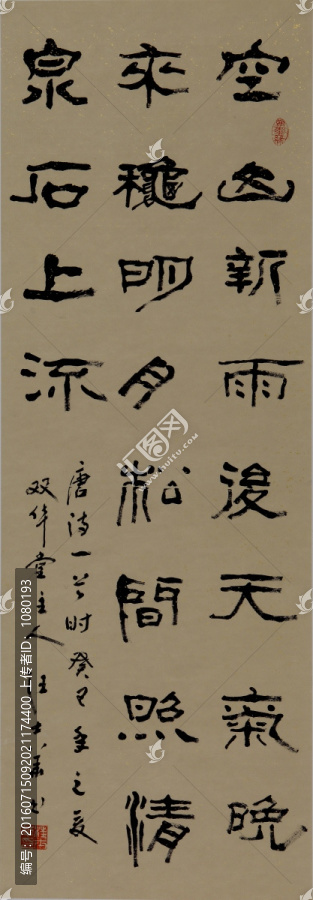 空山新雨後天氣晚
來龝明月松間照清
泉石上流
唐詩一首时癸巳年之夏
双华堂主人汪
编号:20160715092021174400 上传者ID:1080193
汇图网
www.huitu.com